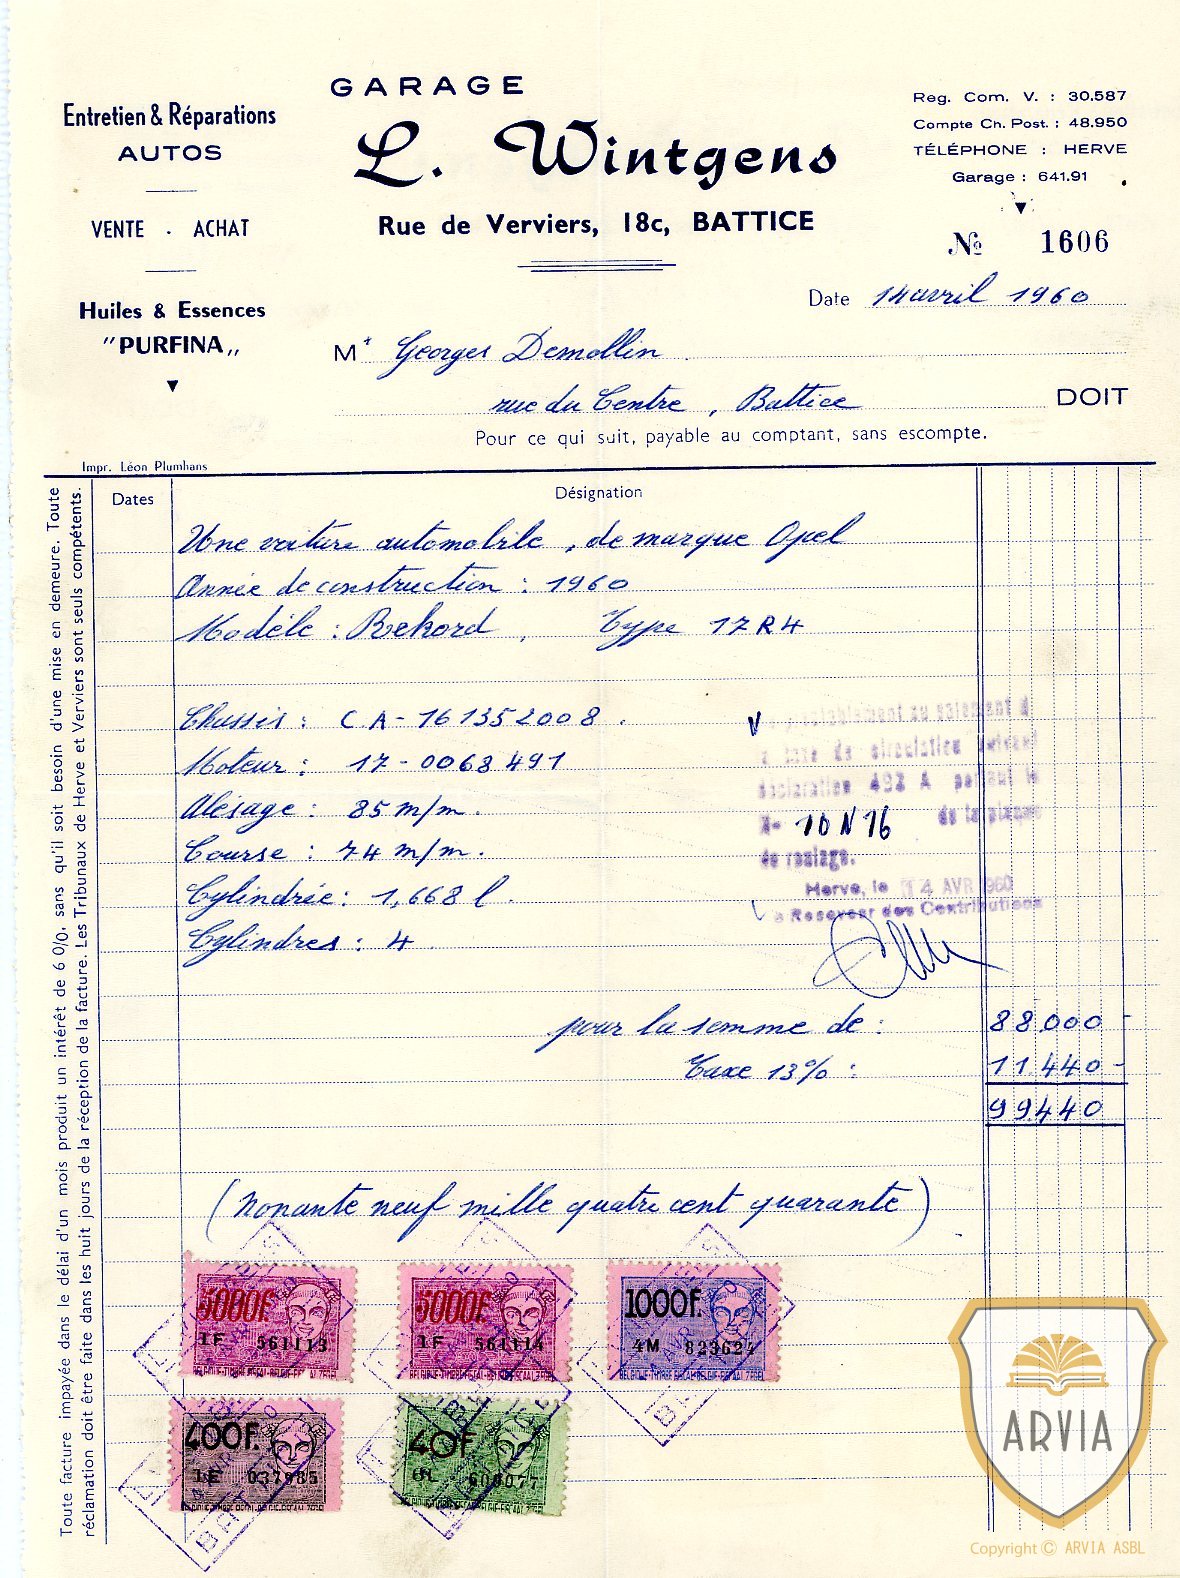 GARAGE
L. Wintgens
Rue de Verviers, 18c, BATTICE
Entretien & Réparations
AUTOS
VENTE . ACHAT
Huiles & Essences
"PURFINA„
Reg. Com. V. : 30.587
Compte Ch. Post. : 48.950
TÉLÉPHONE : HERVE
Garage : 641.91
№ 1606
Date 14 avril 1960
Mr Georges Demollin
rue du Centre, Battice DOIT
Pour ce qui suit, payable au comptant, sans escompte.
Impr. Léon Plumhans
Dates Désignation
Une voiture automobile, de marque Opel
Année de construction : 1960
Modèle : Rekord, Type 17R4
Chassis : CA-161352008.
Moteur : 17-0068491
Alésage : 85 m/m.
Course : 74 m/m.
Cylindrée : 1,668 l.
Cylindres : 4
au paiement
taxe de circulation suivant
déclaration 492 A portant le
N- 10 N 16 de la plaque
de roulage.
Herve, le 14 AVR 1960
Le Receveur des Contributions
pour la somme de : 88.000 -
Taxe 13% : 11.440 -
99.440
(nonante neuf mille quatre cent quarante)
5000F. 1F 561113
5000F. 1F 561114
1000F. 4M
400F. 1E 037985
40F
BELGIQUE-TIMBRE FISCAL-BELGIE-FISCALZEGEL
Toute facture impayée dans le délai d'un mois produit un intérêt de 6 0/0, sans qu'il soit besoin d'une mise en demeure. Toute
réclamation doit être faite dans les huit jours de la réception de la facture. Les Tribunaux de Herve et Verviers sont seuls compétents.
ARVIA
Copyright © ARVIA ASBL